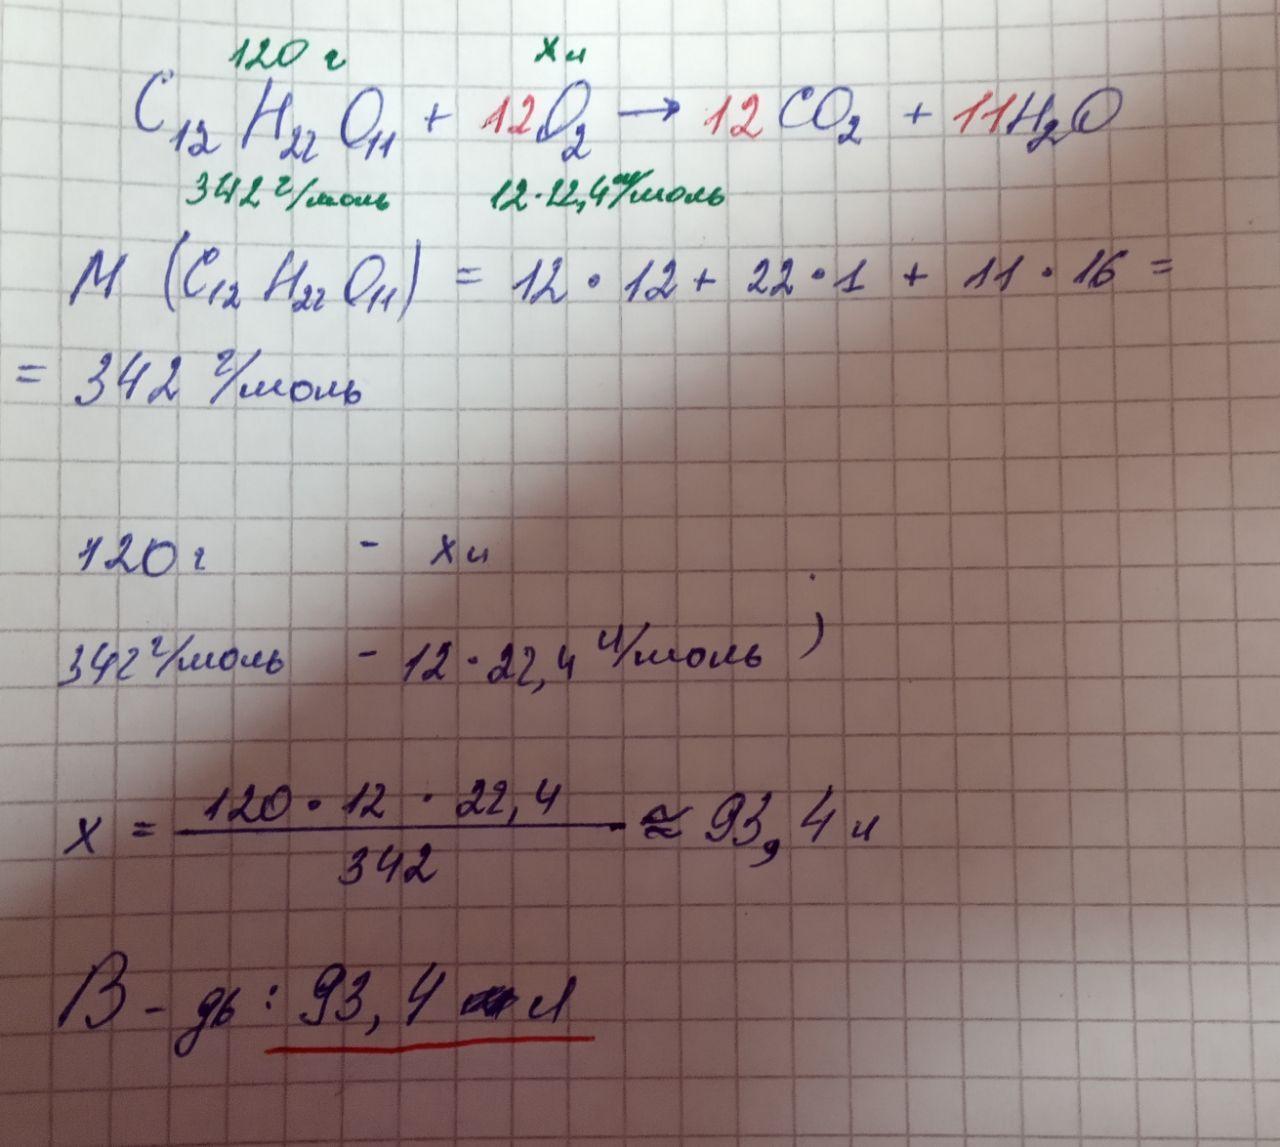 120 г хл
C₁₂H₂₂O₁₁ + 12O₂ → 12CO₂ + 11H₂O
342 г/моль 12·22,4 л/моль
M (C₁₂H₂₂O₁₁) = 12·12 + 22·1 + 11·16 =
= 342 г/моль
120 г - хл
342 г/моль - 12·22,4 л/моль )
x = 120·12·22,4 / 342 ≈ 93,4 л
В-дь: 93,4 л